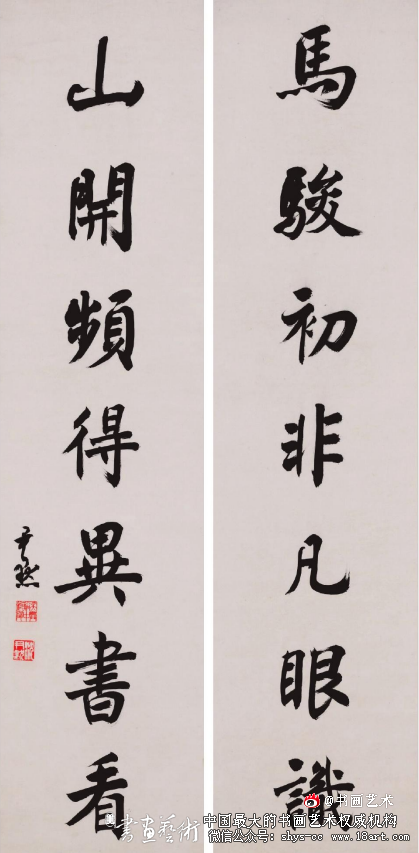 馬駿初非凡眼識
山開頻得異書看
尹默
@书画艺术
書畫藝術
中国最大的书画艺术权威机构
微信公众号：shys-cc www.18art.com